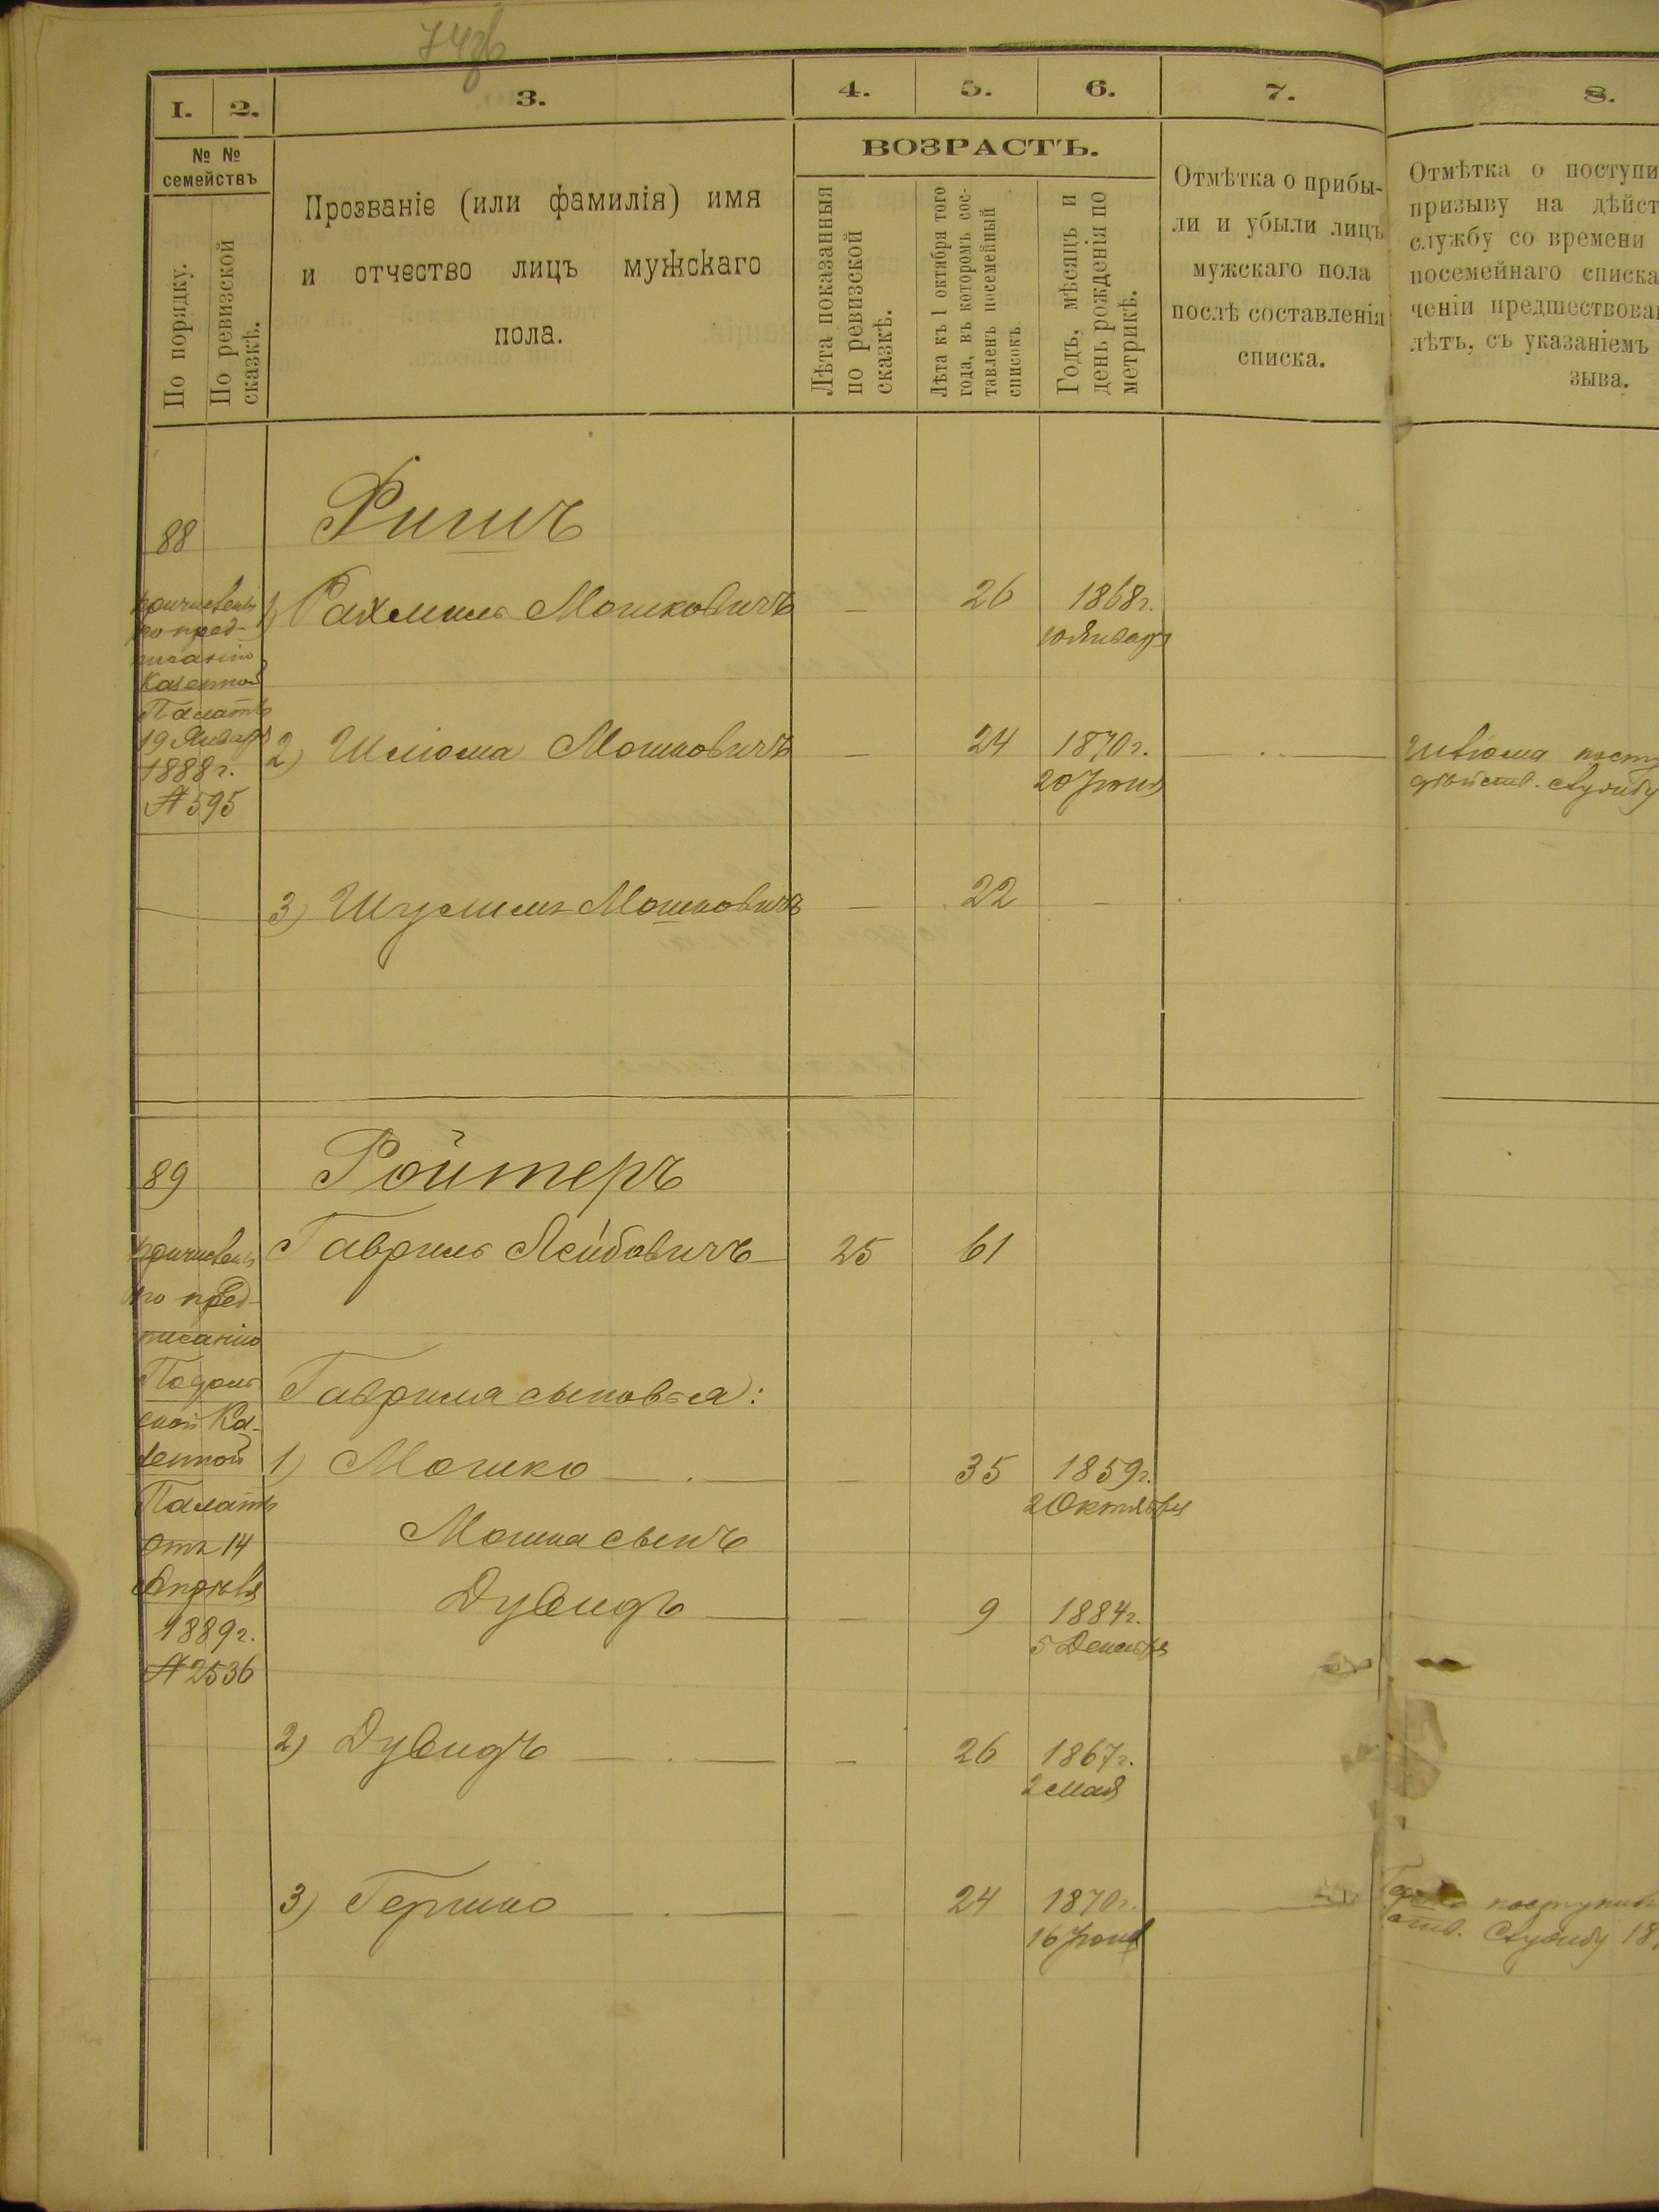 74об
1. 2. 3. 4. 5. 6. 7. 8.
№ №
семействъ
По порядку.
По ревизской
сказкѣ.
Прозваніе (или фамилія) имя
и отчество лицъ мужскаго
пола.
ВОЗРАСТЪ.
Лѣта показанныя
по ревизской
сказкѣ.
Лѣта къ 1 октября того
года, въ которомъ сос-
тавленъ посемейный
списокъ.
Годъ, мѣсяцъ и
день рожденія по
метрикѣ.
Отмѣтка о прибы-
ли и убыли лицъ
мужскаго пола
послѣ составленія
списка.
Отмѣтка о поступи
призыву на дѣйст
службу со времени
посемейнаго списка
ченіи предшествова
лѣтъ, съ указаніемъ
зыва.
88
Ригичъ
причисленъ
по пред-
писанію
Казенной
Палаты
19 Января
1888 г.
№ 595
1) Рахмиль Мошковичъ — 26 1868 г.
10 Января
2) Шліома Мошковичъ — 24 1870 г. — . —
20 Іюня
Шліома посту
дѣйств. службу
3) Шулимъ Мошковичъ — 22 —
89
Ройтеръ
причисленъ
по пред-
писанію
Подоль-
ской Ка-
зенной
Палаты
отъ 14
Апрѣля
1889 г.
№ 2536
Гавриль Лейбовичъ — 25 61
Гаврила сыновья:
1) Мошко — . — 35 1859 г.
2 Октября
Мошка сынъ
Дувидъ — — 9 1884 г.
5 Декабря
2) Дувидъ — . — — 26 1867 г.
2 Мая
3) Гершко — . — — 24 1870 г.
16 Іюня
поступил
ств. службу 18